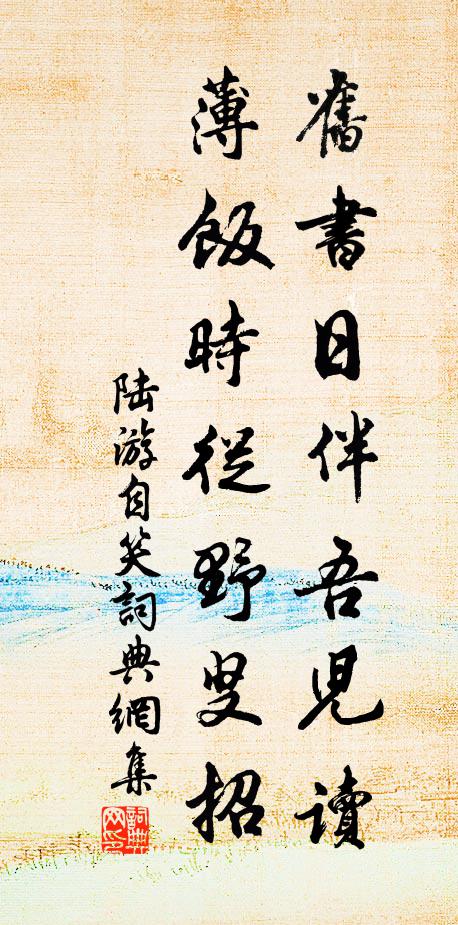 舊書日伴吾兒讀
薄飯時從野叟招
陆游自笑詞典網集
詞典网印